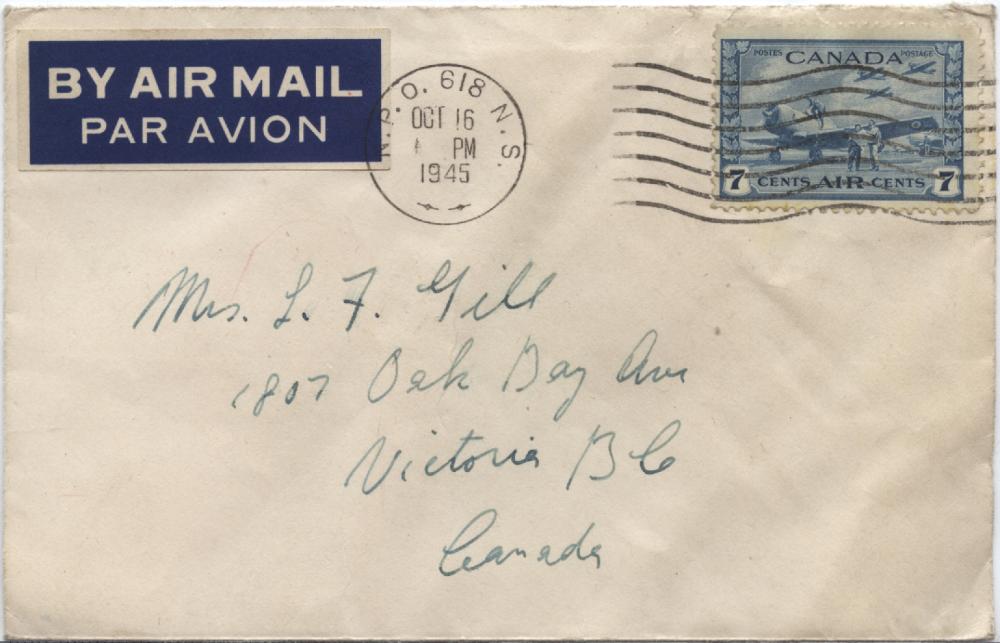 BY AIR MAIL
PAR AVION
N.P.O. 618 N.S.
OCT 16
PM
1945
POSTES CANADA POSTAGE
7 CENTS AIR CENTS 7
Mrs. L. F. Gill
1807 Oak Bay Ave
Victoria B C
Canada